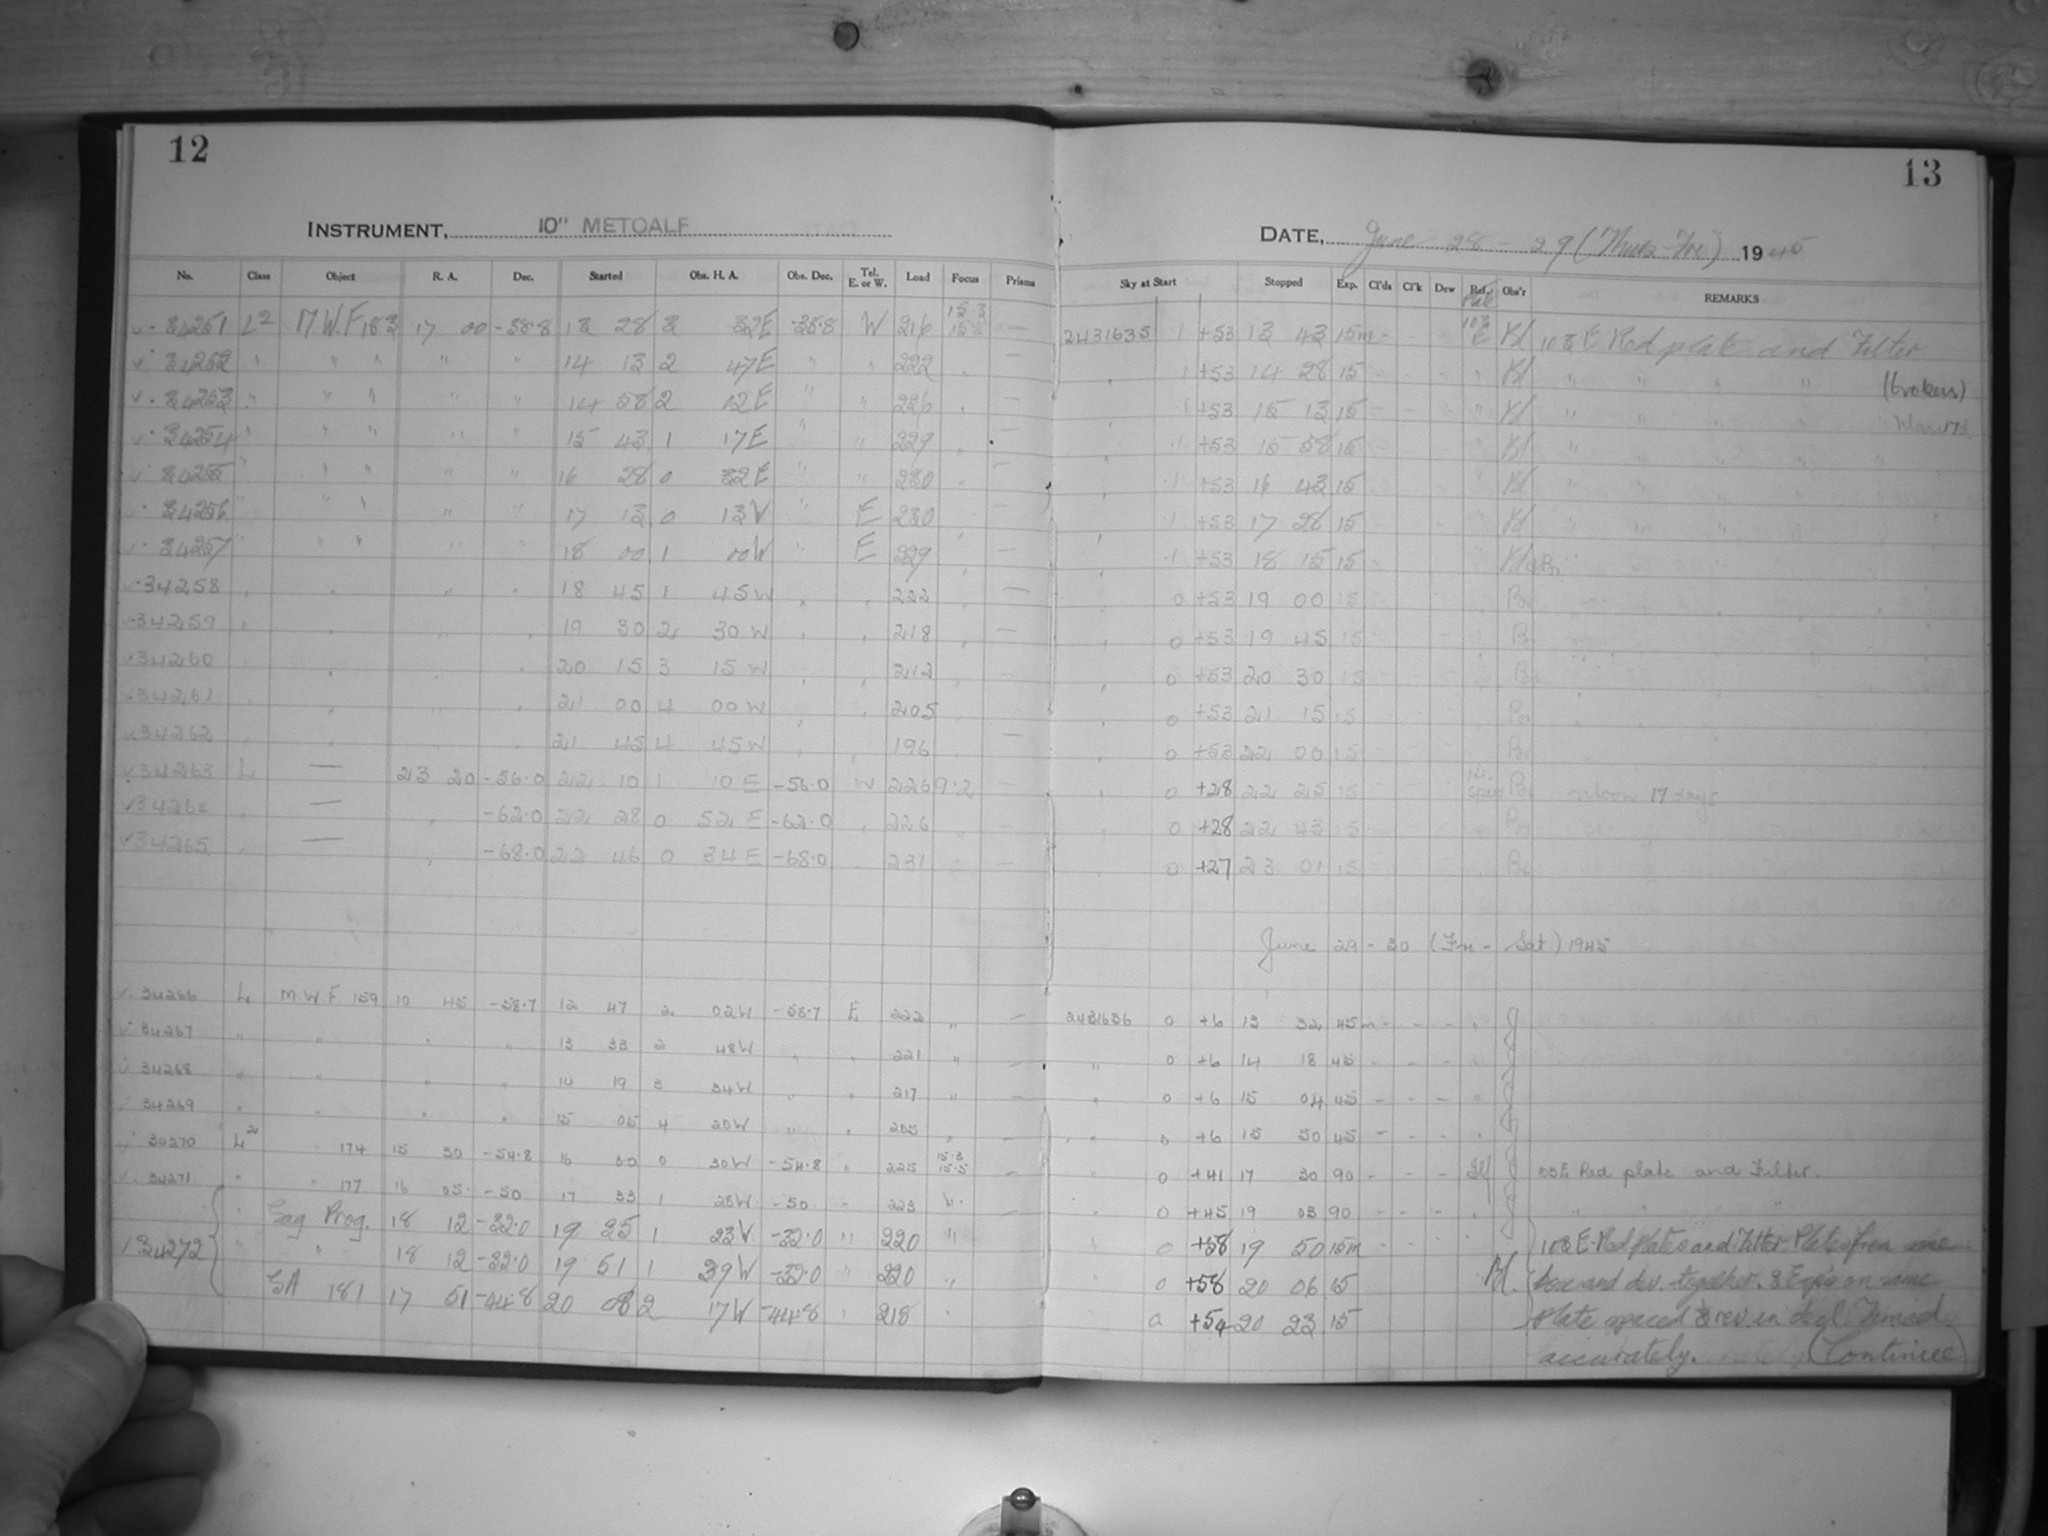 12
13
INSTRUMENT, 10" METCALF
DATE, June 28 - 29 (Thurs-Fri) 1945
No. Class Object R. A. Dec. Started Obs. H. A. Obs. Dec. Tel. E. or W. Load Focus Prisms Sky at Start Stopped Exp. Cl'ds Cl'k Dew Ref. Obs'r REMARKS
34251 L2 M.W.F 183 17 00 -38.8 13 28 3 32E -38.8 W 216 15.3 — 2431635 .1 +53 13 43 15m 103 E Kd 103 E Red plate and Filter
34252 " " " " " 14 13 2 47E " " 222 .1 +53 14 28 15 Kd " " " " (broken)
34253 " " " " " 14 58 2 02E " " 226 — .1 +53 15 13 15 Kd " " " "
34254 " " " " " 15 43 1 17E " " 229 — .1 +53 15 58 15 Kd
34255 " " " " " 16 28 0 32E " " 230 — .1 +53 16 43 15 Kd
34256 " " " " " 17 13 0 13W " E 230 .1 +53 17 28 15 Kd
34257 " " " " " 18 00 1 00W " E 229 — .1 +53 18 15 15 Kd&Br
34258 18 45 1 45W 222 — 0 +53 19 00 15 Br
34259 19 30 2 30W 218 — 0 +53 19 45 15 Br
34260 20 15 3 15W 212 — 0 +53 20 30 15 Br
34261 21 00 4 00W 205 0 +53 21 15 15 Br
34262 21 45 4 45W 196 — 0 +53 22 00 15 Br
34263 L — 23 20 -56.0 22 10 1 10E -56.0 W 226 9.2 — 0 +28 22 25 15 Br Moon 17 days
34264 — -62.0 22 28 0 52E -62.0 226 — 0 +28 22 43 15 Br
34265 — -68.0 22 46 0 34E -68.0 231 — 0 +27 23 01 15 Br
June 29 - 30 (Fri - Sat) 1945
34266 L M.W.F. 159 10 45 -58.7 12 47 2 02W -58.7 E 222 " — 2431636 0 +6 13 32 45m - - - J
34267 " " " " 13 33 2 48W 221 " — " 0 +6 14 18 45 - - - J
34268 " " " " 14 19 3 34W 217 " — " 0 +6 15 04 45 - - - J
34269 " " " " 15 05 4 20W 205 — " 0 +6 15 50 45 - - - J
34270 L2 " 174 15 30 -54.8 16 00 0 30W -54.8 " 225 15.3 15.5 — " 0 +41 17 30 90 - - - J 103E Red plate and Filter.
34271 " " 177 16 05 -50 17 33 1 28W -50 " 223 " " 0 +45 19 03 90 - - - J " "
Sag Prog. 18 12 -32.0 19 35 1 23W -32.0 " 220 " 0 +58 19 50 15m 103 E-Red plates and Filter. Plates from same
34272 " " 18 12 -32.0 19 51 1 39W -32.0 " 220 " 0 +58 20 06 15 Kd. box and dev. together. 3 Exp's on same
SA 181 17 51 -44.8 20 08 2 17W -44.8 218 0 +54 20 23 15 Plate spaced 3 rev. in decl.
accurately. (Continue)